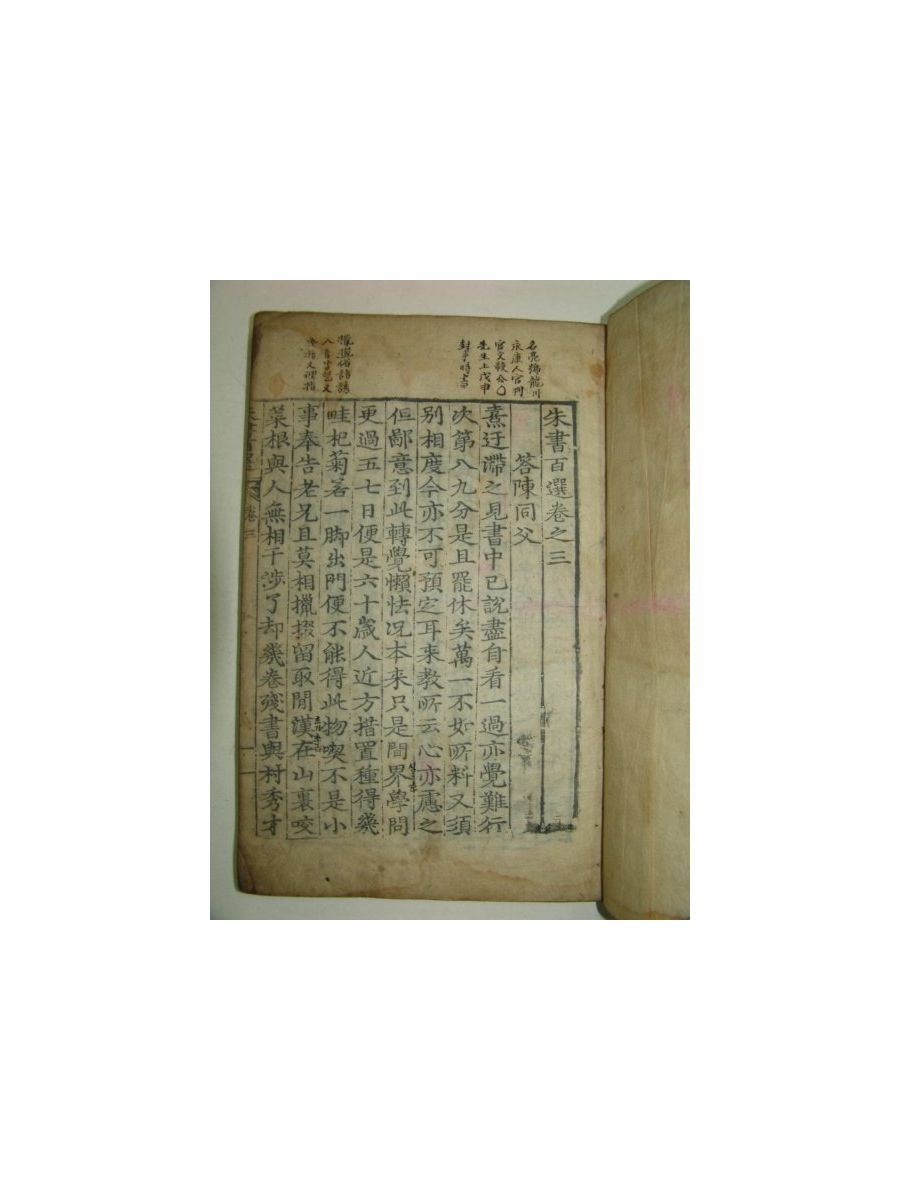 朱書百選卷之三
答陳同父
熹迂滯之見書中已說盡自看一過亦覺難行
次第八九分是且罷休矣萬一不如所料又須
別相度今亦不可預定耳来教所云心亦慮之
但鄙意到此轉覺懶怯况本来只是間界學問
更過五七日便是六十歲人近方措置種得幾
畦杞菊若一脚出門便不能得此物喫不是小
事奉告老兄且莫相攛掇留取閒漢在山裏咬
菜根與人無相干涉了却幾卷殘書與村秀才
卷三
名亮號龍川
永康人官
官文毅公
先生上戊申
封事時